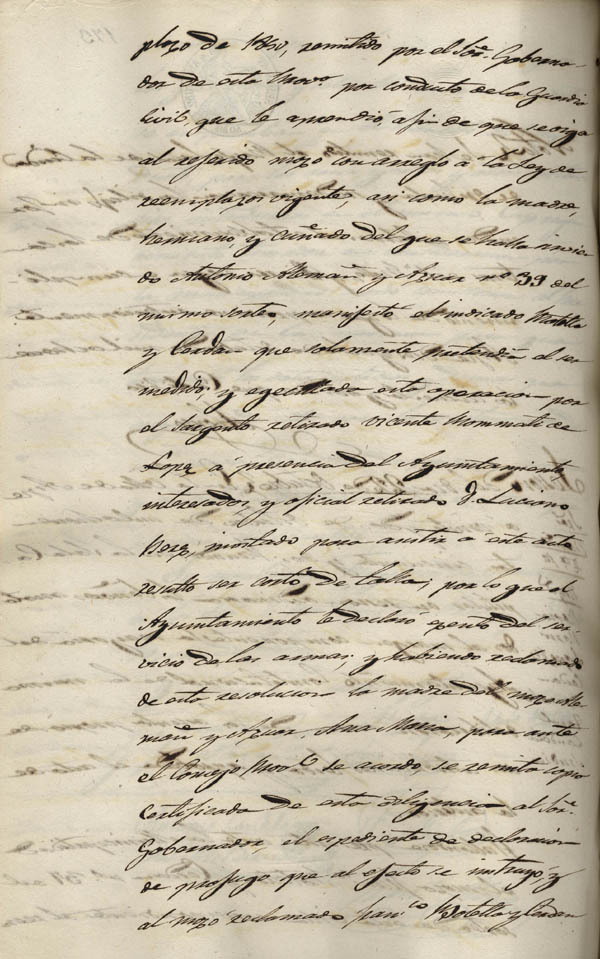 plazo de 1860, remitido por el Sor. Goberna-
dor de esta Prova. por conducto de la Guardia
Civil, que le aprendió, á fin de que se oiga
al referido mozo con arreglo á la Ley de
reemplazos vigente, asi como la madre,
hermano, y cuñado del que se halla sirvien
do Antonio Alemañ y Aznar nº 39 del
mismo sorteo, manifestó el indicado Botella
y Cerdan que solamente pretendia el ser
medido; y egecutada esta operacion por
el Sargento retirado Vicente Mommati de
Lopez á presencia del Ayuntamiento
interesados, y oficial retirado D. Luciano
Perez, invitado para asistir a este acto
resultó ser corto de talla; por lo que el
Ayuntamiento le declaró exento del ser-
vicio de las armas; y habiendo reclamado
de esta resolucion la madre del mozo Ale
mañ y Aznar, Ana Maria para ante
el Consejo Provl. se acordó, se remita copia
certificada de esta diligencia al Sor.
Gobernador, el espediente de declaracion
de profugo que al efecto se instruyó, y
al mozo reclamado Franco. Botella y Cerdan